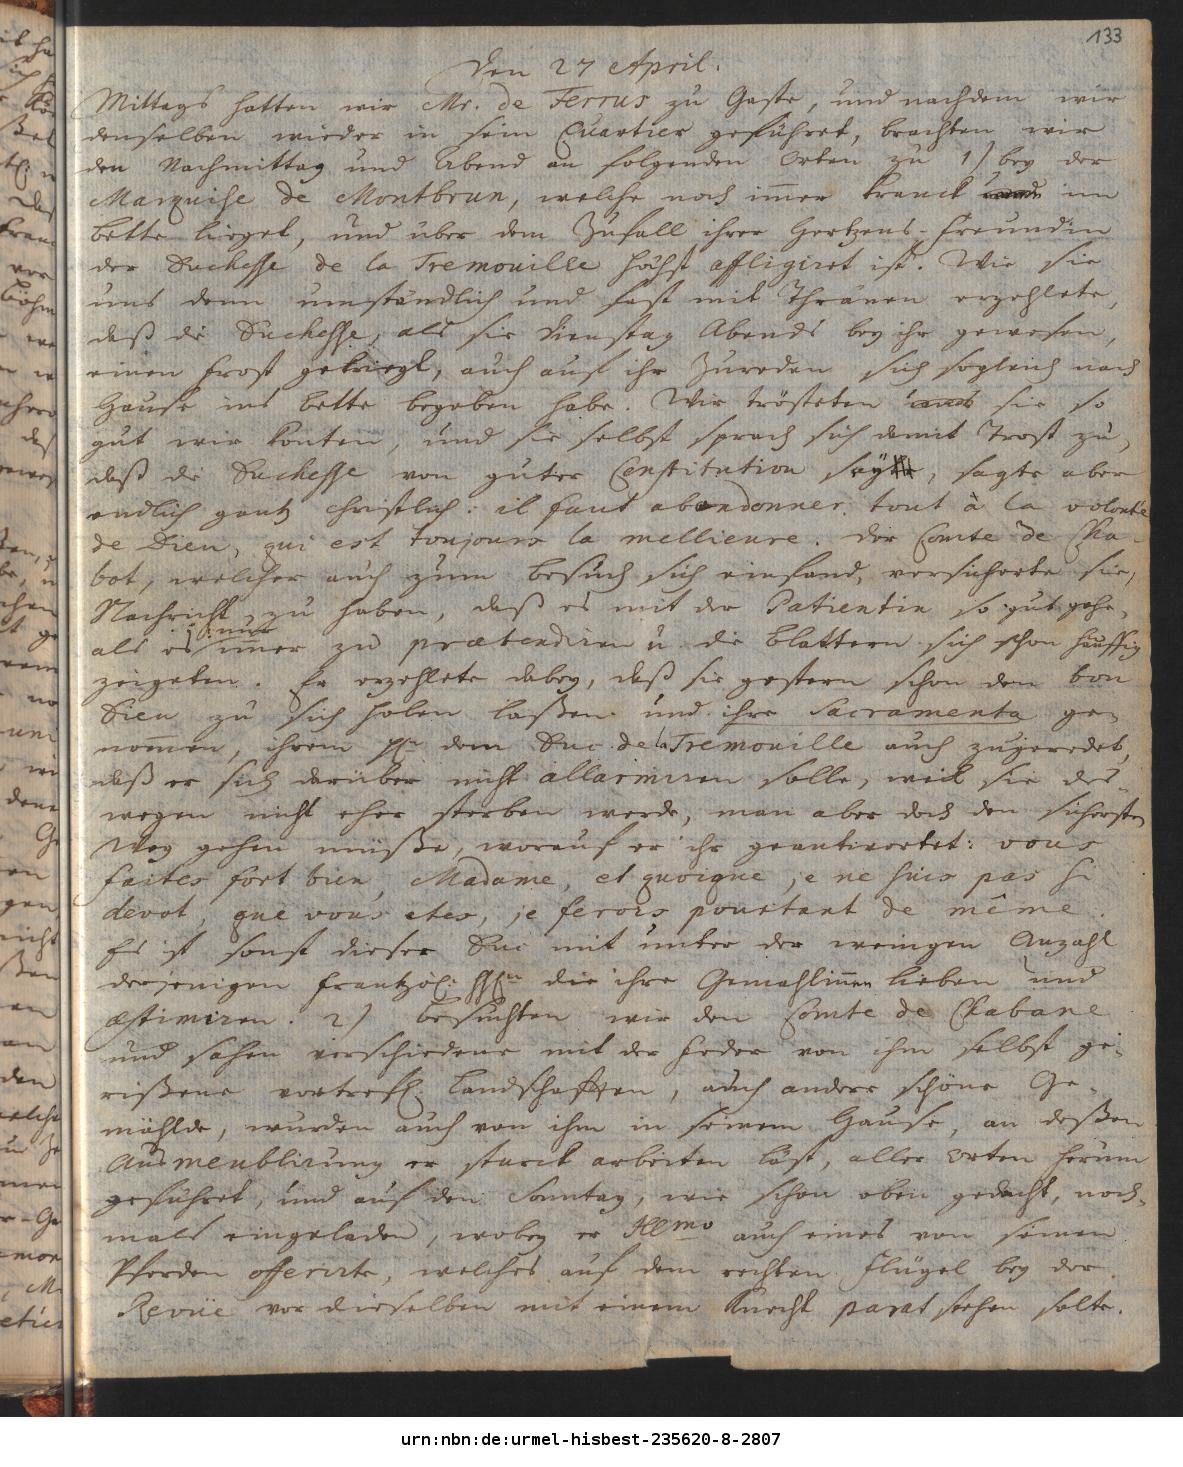 133
Den 27 April.
Mittags hatten wir Mr. de Ferrus zu Gaste, und nachdem wir
denselben wieder in sein Quartier geführet, brachten wir
den Nachmittag und Abend an folgenden Orten zu 1) bey der
Marquise de Montbrun, welche noch im̄er kranck im
bette lieget, und über dem Zufall ihrer Hertzens-Freundin
der Duchesse de la Tremouille höchst affligiret ist. Wie sie
uns denn umständlich und fast mit Thränen erzehlete,
daß die Duchesse, als sie Dienstag Abends bey ihr gewesen,
einen Frost gekriegt, auch auf ihr Zureden sich sogleich nach
Hause ins bette begeben habe. Wir trösteten sie so
gut wir konten, und sie selbst sprach sich damit Trost zu,
daß die Duchesse von guter Constitution sey, sagte aber
endlich gantz christlich: il faut abandonner tout à la volonté
de Dieu, qui est toujours la mellieure. Der Comte de Cha-
bot, welcher auch zum besuch sich einfand, versicherte sie,
Nachricht zu haben, daß es mit der Patientin so gut gehe,
als es nur im̄er zu prætendiren u. die blattern sich schon häuffig
zeigeten. Er erzehlete dabey, daß sie gestern schon den bon
Dieu zu sich holen laßen und ihre Sacramenta ge-
nom̄en, ihrem H. dem Duc de la Tremouille auch zugeredet,
daß er sich darüber nicht allarmiren solle, weil sie des-
wegen nicht eher sterben werde, man aber doch den sichersten
Weg gehen müße, worauf er ihr geantwortet: vous
faites fort bien, Madame, et quoique je ne suis pas si
devot, que vous etes, je ferois pourtant de même.
Es ist sonst dieser Duc mit unter der wenigen Anzahl
derjenigen Frantzös. HH. die ihre Gemahlin̄en lieben und
æstimiren. 2) besuchten wir den Comte de Chabane
und sahen verschiedene mit der Feder von ihm selbst ge-
rißene vortrefl. Landschafften, auch andere schöne Ge-
mählde, wurden auch von ihm in seinem Hause, an deßen
Ausmeublirung er starck arbeiten läst, aller Orten herum
geführet, und auf den Sonntag, wie schon oben gedacht, noch-
mals eingeladen, wobey er Illmo auch eines von seinen
Pferden offerirte, welches auf dem rechten Flügel bey der
Revüe vor dieselben mit einem Knecht parat stehen solte.
urn:nbn:de:urmel-hisbest-235620-8-2807